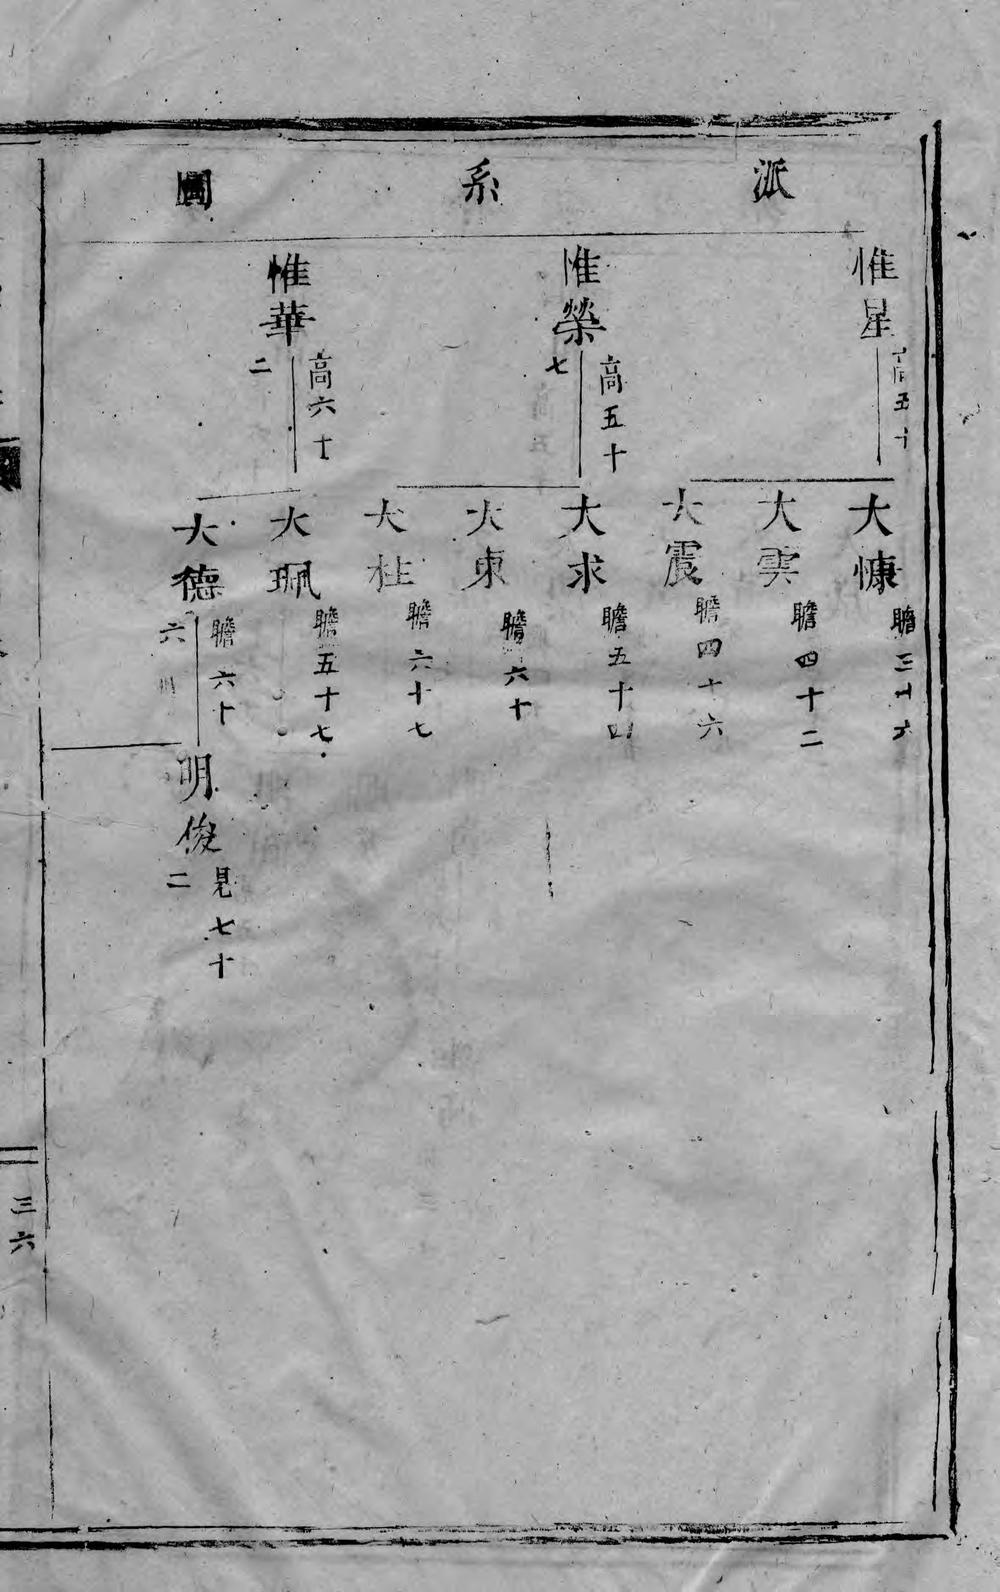 派系圖
惟星 高五十
惟榮 高五十七
惟華 高六十二
大慷 瞻三十六
大雲 瞻四十二
大震 瞻四十六
大求 瞻五十四
大東 瞻六十
大柱 瞻六十七
大珮 瞻五十七
大德 瞻六十六
明俊 見七十二
三六